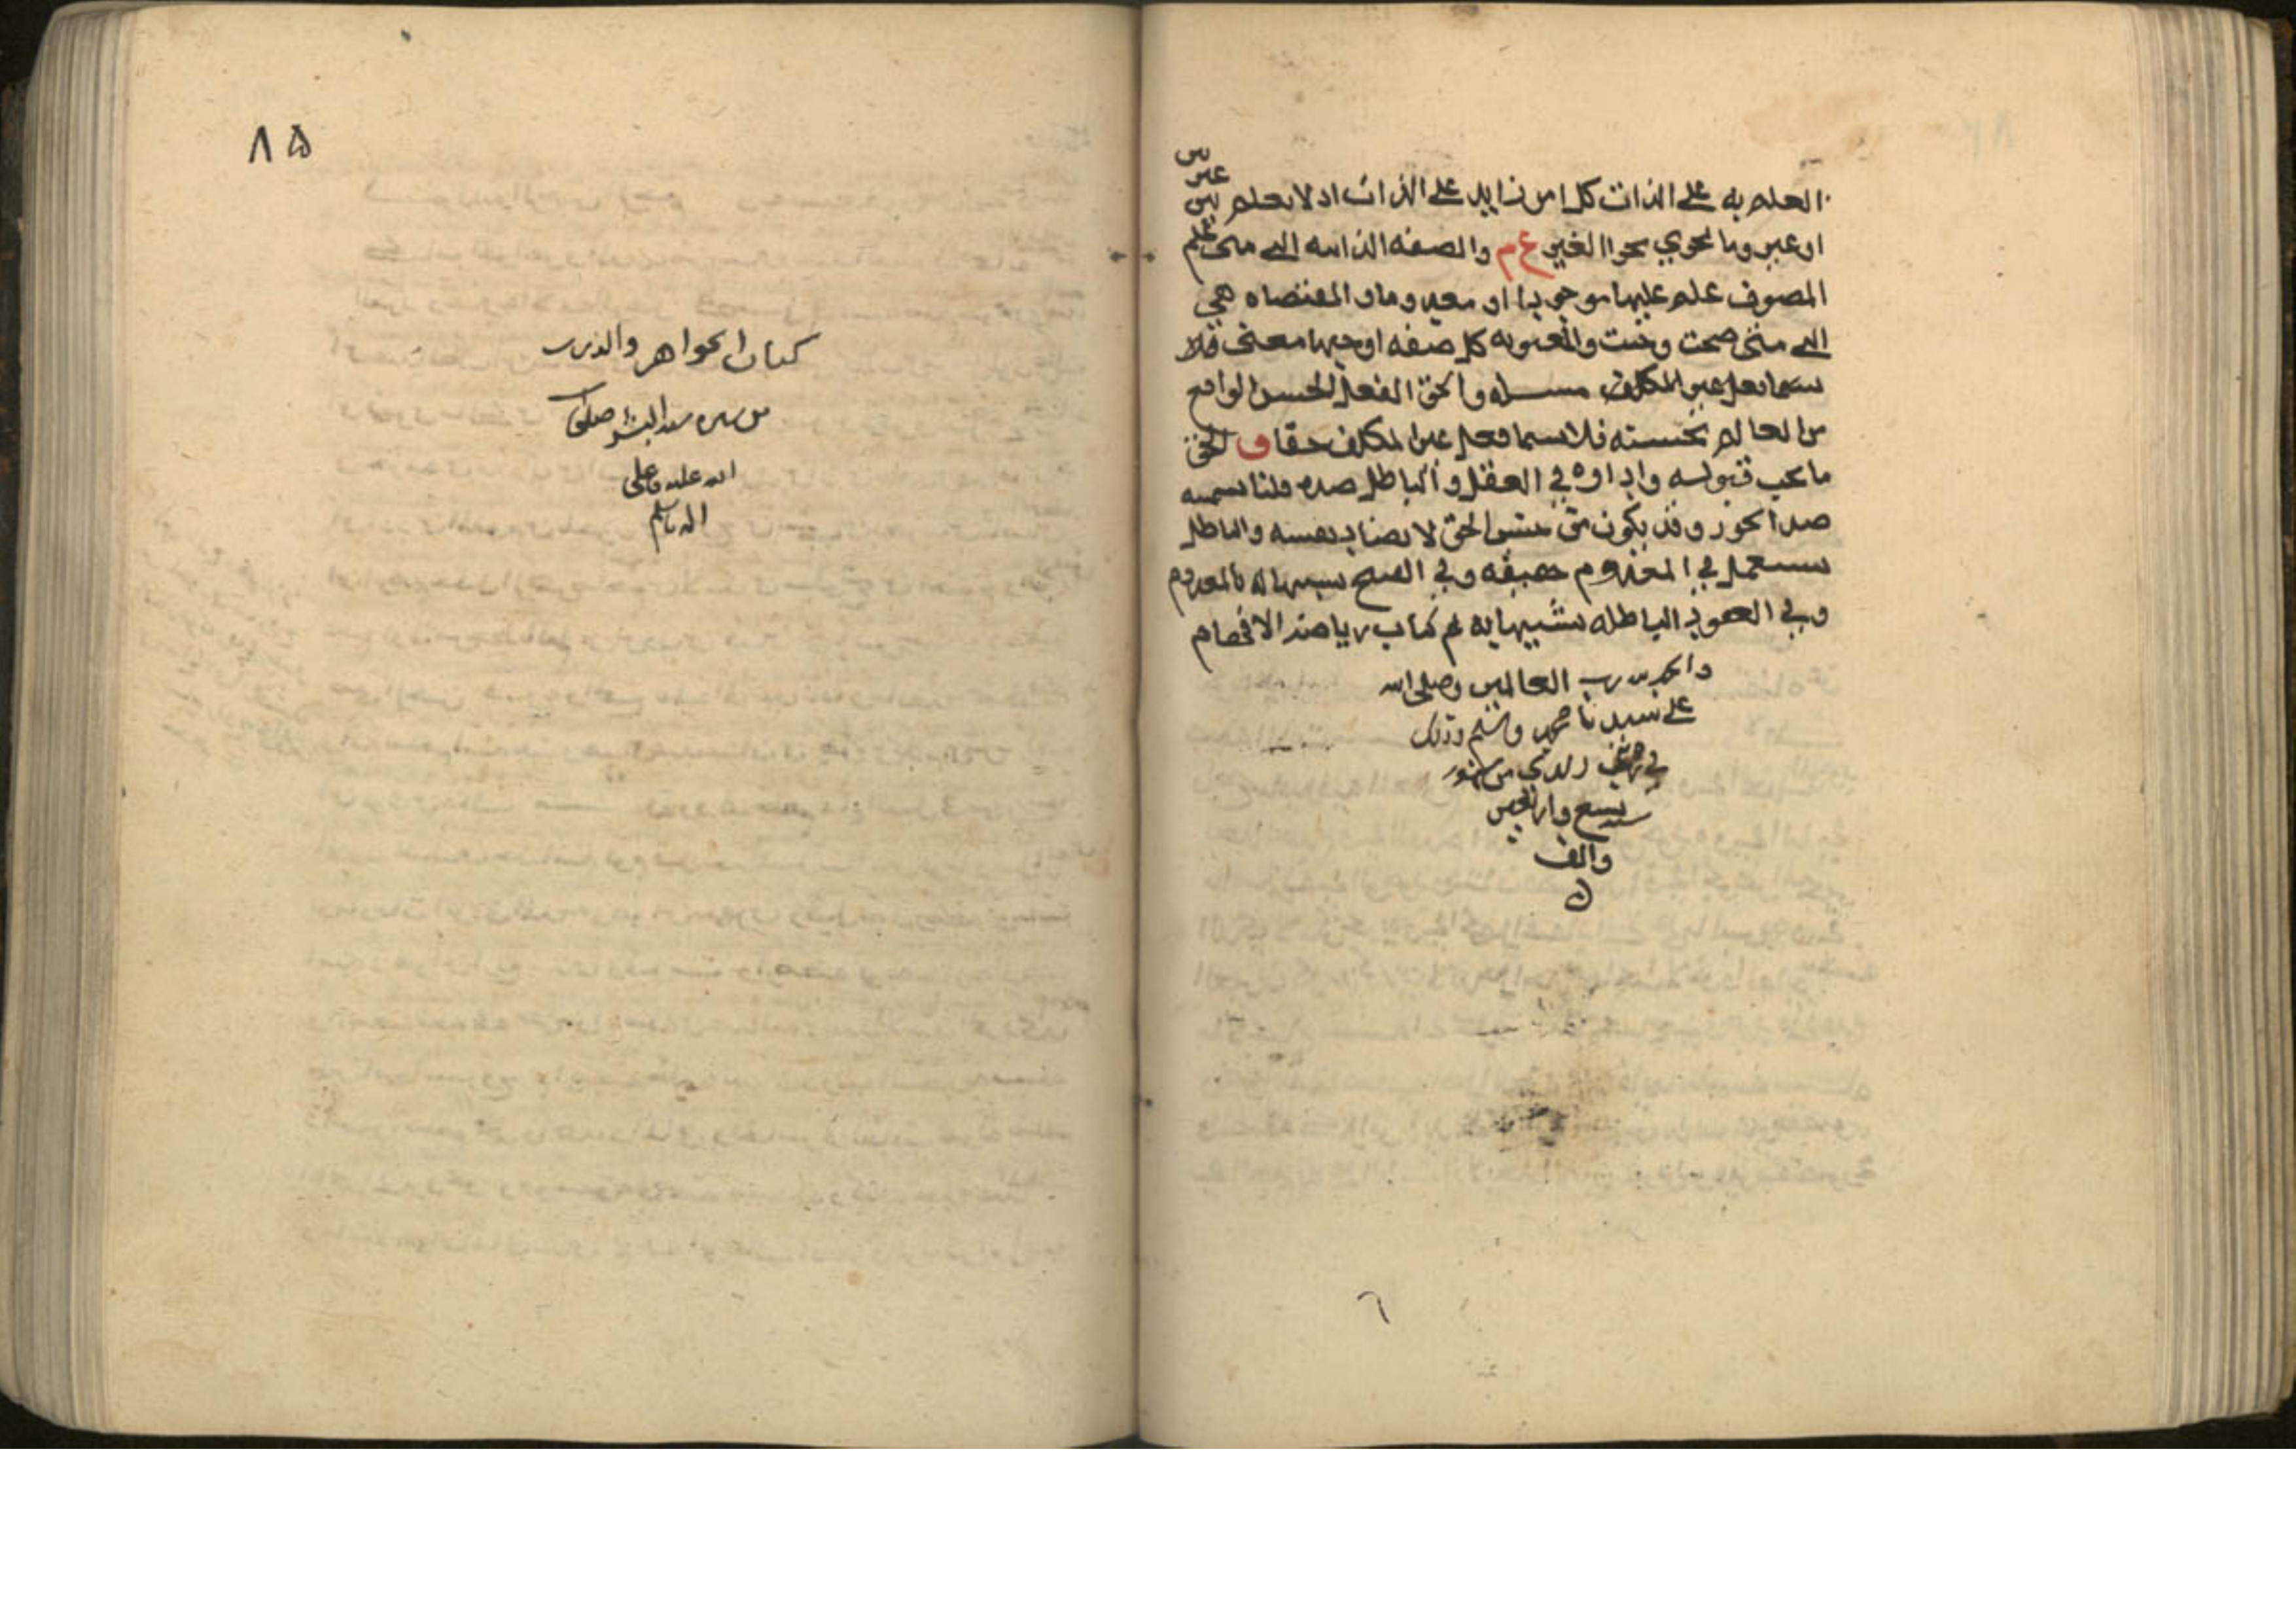 العلم به على الذات كل امر زايد على الذات اد لا يعلم
او عير وما يحوي يحوا الغير ع م والصفه الذاتيه التي متى علم
الموصوف علم عليها موجودا او معدوما و المقتضاه هي
التي متى صحت وجبت والمعنويه كل صفه اوجبها معنى فلا
يسما فعل غير المكلف مسـله والحق الفعل الحسن الواقع
من العالم بحسنه فلا يسما فعل غير المكلف حقا ق الحق
ما يجب قبوله واداوه في العقل والباطل ضده قلنا تسميه
ضدا تجوز وقد يكون متى الحق لا يضاد نفسه والباطل
يستعمل في المعدوم حقيقه وفي القبيح تشبيها له بالمعدوم
وفي العقود الباطله تشبيها به تم كتاب رياضه الافهام
والحمد لله رب العالمين وصلى الله
على سيدنا محمد واله وسلم وذلك
في من شهور
سنه سبع واربعين
والف
ن
٨٥
كتاب الجواهر والدرر
من سيره سيد البشر صلى
الله عليه وعلى
اله وسلم